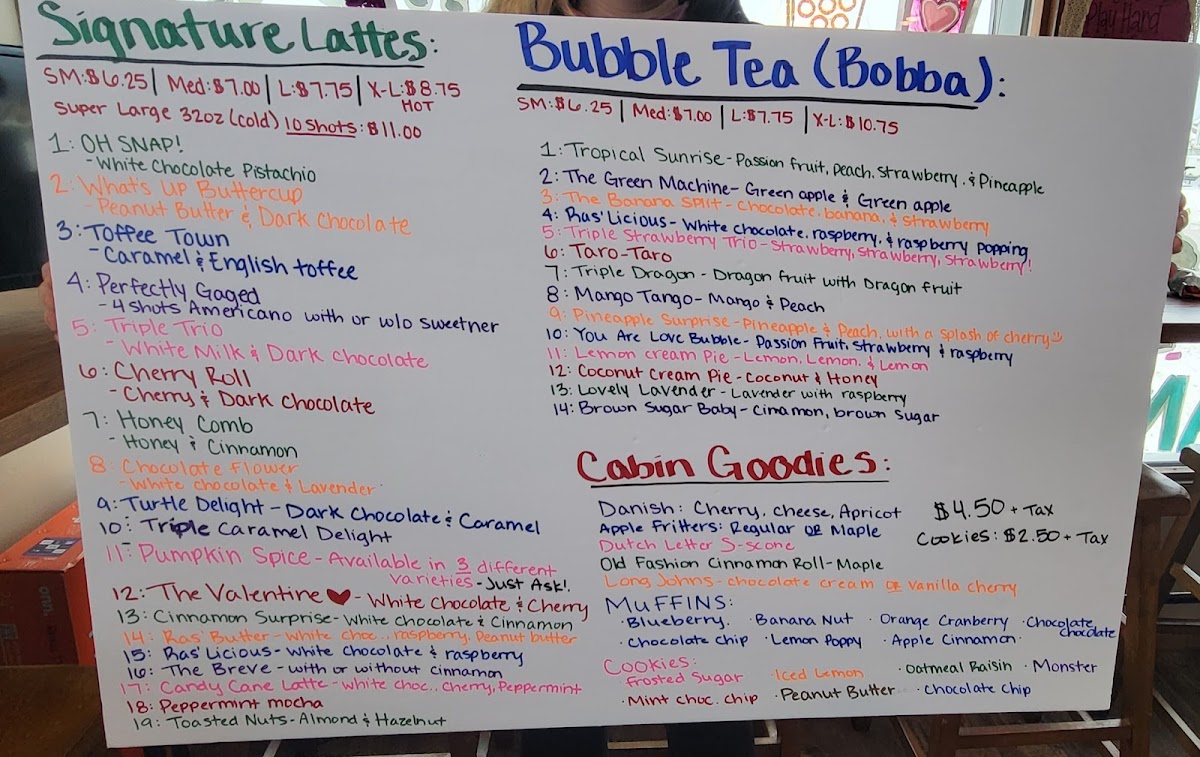 Signature Lattes:
SM:$6.25 | Med:$7.00 | L:$7.75 | X-L:$8.75
HOT
Super Large 32oz (cold) 10 Shots: $11.00
1: OH SNAP!
-White Chocolate Pistachio
2: What's Up Buttercup
-Peanut Butter & Dark Chocolate
3: Toffee Town
-Caramel & English toffee
4: Perfectly Gaged
-4 shots Americano with or w/o sweetner
5: Triple Trio
-White Milk & Dark Chocolate
6: Cherry Roll
-Cherry & Dark Chocolate
7: Honey Comb
-Honey & Cinnamon
8: Chocolate Flower
-White chocolate & Lavender
9: Turtle Delight - Dark Chocolate & Caramel
10: Triple Caramel Delight
11: Pumpkin Spice - Available in 3 different
varieties - Just Ask!
12: The Valentine ♥ - White Chocolate & Cherry
13: Cinnamon Surprise - White chocolate & Cinnamon
14: Ras'Butter - white choc., raspberry, Peanut butter
15: Ras'Licious - White chocolate & raspberry
16: The Breve - with or without cinnamon
17: Candy Cane Latte - white choc., cherry, Peppermint
18: Peppermint mocha
19: Toasted Nuts - Almond & Hazelnut
Bubble Tea (Bobba):
SM:$6.25 | Med:$7.00 | L:$7.75 | X-L:$10.75
1: Tropical Sunrise - Passion fruit, peach, strawberry, & Pineapple
2: The Green Machine - Green apple & Green apple
3: The Banana Split - Chocolate, banana, & strawberry
4: Ras'Licious - White chocolate, raspberry, & raspberry popping
5: Triple Strawberry Trio - Strawberry, strawberry, strawberry!
6: Taro-Taro
7: Triple Dragon - Dragon fruit with Dragon fruit
8: Mango Tango - Mango & Peach
9: Pineapple Surprise - Pineapple & Peach, with a splash of cherry
10: You Are Love Bubble - Passion Fruit, Strawberry & raspberry
11: Lemon cream Pie - Lemon, Lemon, & Lemon
12: Coconut Cream Pie - Coconut & Honey
13: Lovely Lavender - Lavender with raspberry
14: Brown Sugar Baby - Cinamon, brown sugar
Cabin Goodies:
Danish: Cherry, cheese, Apricot $4.50 + Tax
Apple Fritters: Regular OR Maple Cookies: $2.50 + Tax
Dutch Letter S-scone
Old Fashion Cinnamon Roll - Maple
Long Johns - chocolate cream OR vanilla cherry
MUFFINS:
·Blueberry · Banana Nut · Orange Cranberry · Chocolate
chocolate
·Chocolate chip · Lemon Poppy · Apple Cinnamon
Cookies:
Frosted Sugar ·Iced Lemon ·Oatmeal Raisin · Monster
·Mint choc. chip ·Peanut Butter ·Chocolate chip
Play Hard
onn.